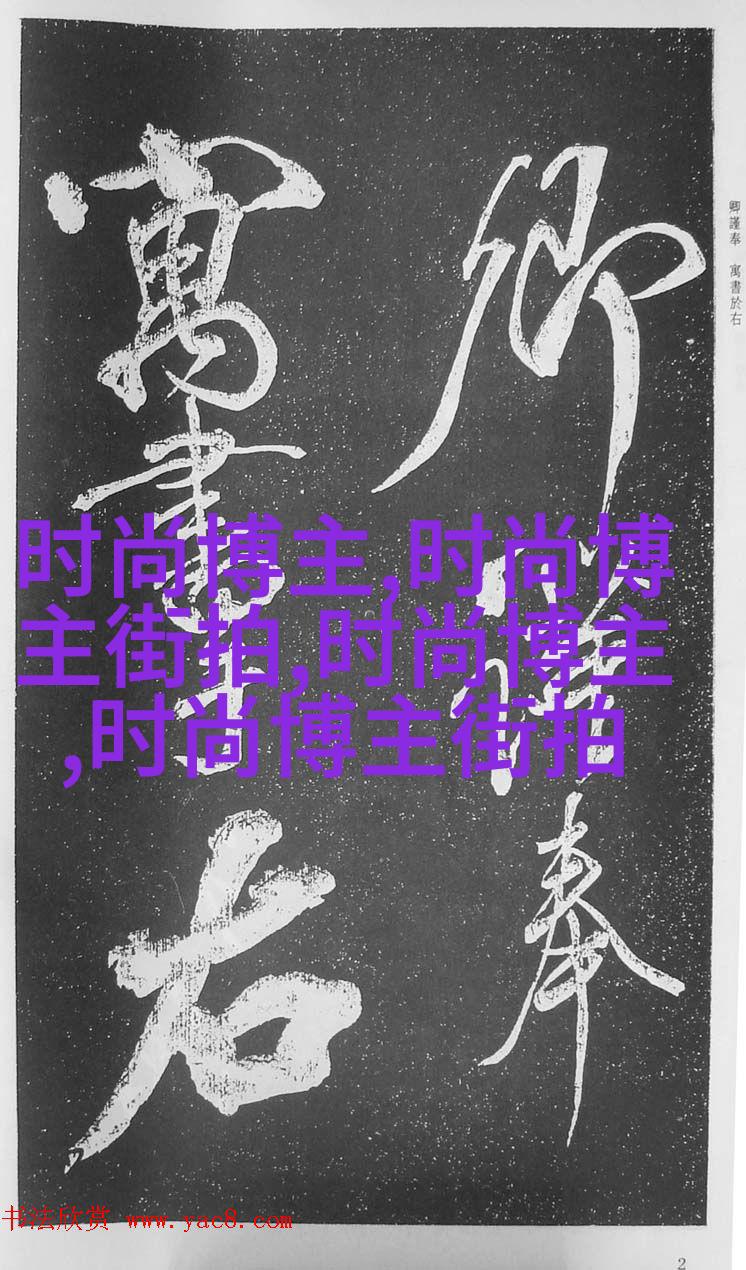 卿謹奉
寓書於右
卿謹奉 寓書於右
时尚博主,时尚博
主街拍,时尚博主
,时尚博主街拍
书法欣赏 www.yac8.com
2